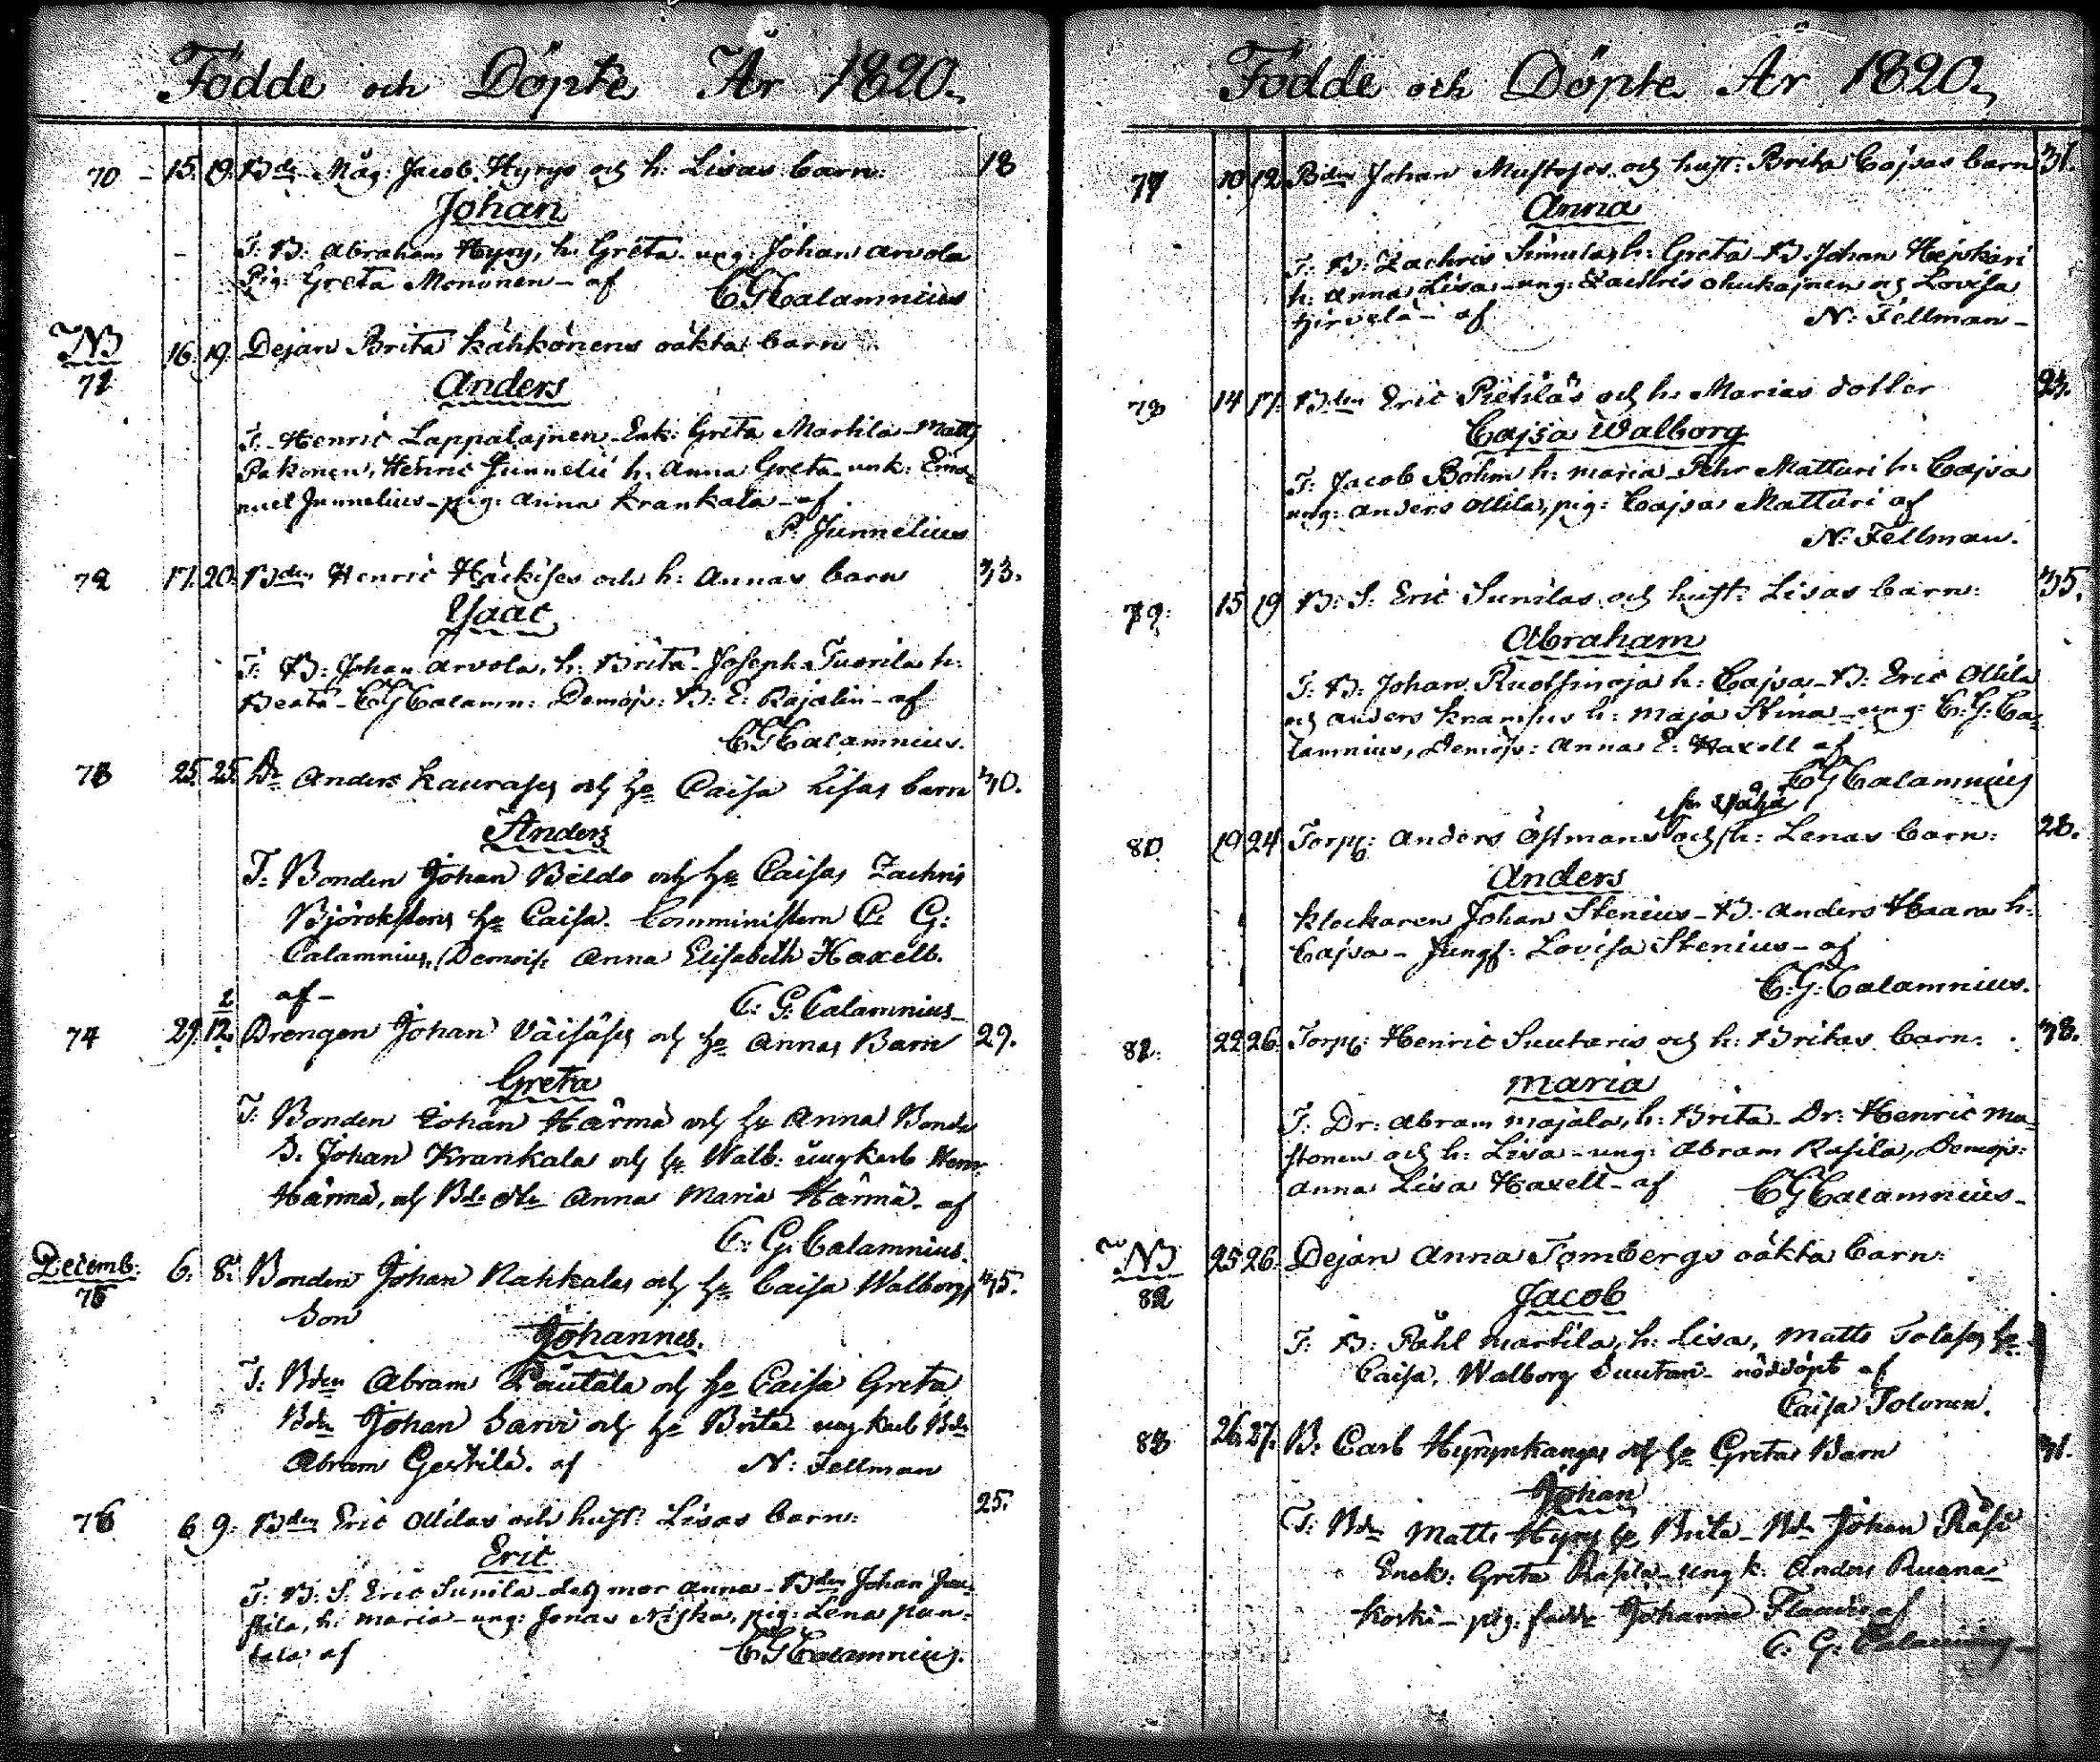 Födde och Döpte År 1820.
70 15. 19. Bdn Måg: Jacob Hyrys och h: Lisas barn: 18
Johan
T: B: Abraham Hyry, h: Greta ung: Johan Arvola
Pig: Greta Mononen - af CG Calamnius
NB 71 16. 19. Dejan Brita Kähkönens oäkta barn
Anders
T: Henric Lappalajnen Enk: Greta Martila - Matts
Pakonen, Henric Junnelii h: Anna Greta - unk: Ema
nuel Junnelius - pig: Anna Krankala - af
P. Junnelius
72 17. 20. Bden Henric Häckises och h: Annas barn 33.
Isaac
T: B: Johan Arvola, h: Brita - Joseph Tuorila h:
Beata - CG Calamn: Demojs: B: E: Rajalin - af
CG Calamnius.
73 25. 25. Dr Anders Kaurases och he Caisa Lisas barn 30.
Anders
T: Bonden Johan Bildo och he Caisa, Zachris
Björckstens he Caisa. Comministern C. G:
Calamnius, Demois: Anna Elisabeth Haxell.
af - C: G: Calamnius
74 29. 2/12. Drengen Johan Väisäses och he Annas Barn 29.
Greta
T: Bonden Johan Härmä och he Anna Bonde
S. Johan Krankala och he Walb: ungkarl Henr
Härmä, och Bde dtr Anna Maria Härmä - af
C: G: Calamnius.
Decemb: 75 6. 8. Bonden Johan Rahkalas och he Caisa Walborgs 35.
Son
Johannes.
T: Bden Abram Pautala och he Caisa Greta
Bdn Johan Sarvi och he Brita ungkarl Bdn
Abram Gestilä. af N: Fellman
76 6 9. Bden Eric Ollilas och hust: Lisas barn: 25.
Eric
T: B: S: Eric Sunila - des mor Anna - Bden Johan Jau
kila, h: Maria - ung: Jonas Niska, pig: Lena pau
tala af CG Calamnius.
Födde och Döpte År 1820.
77 10 12 Bden Johan Mustoses och hust: Brita Cajsas barn 31.
Anna
T: B: Zachris Simula, h: Greta - B: Johan Hejskari
h: Anna Lisa - ung: Zachris Mukajnen och Lovisa
Hirvelä - af N: Fellman -
78 14 17. Bden Eric Pietiläs och h: Marias dotter 23.
Cajsa Walborg
T: Jacob Bohm h: Maria - Pehr Matturi h: Cajsa
ung: Anders Ollila, pig: Cajsa Matturi af
N: Fellman.
79. 15 19 B: S: Eric Sunilas och hust: Lisas barn: 35.
Abraham
T: B: Johan Ruotsinoja h: Cajsa - B: Eric Ollila
och Anders Kramsus h: Maja Stina - ung: C: G: Ca
lamnius, Demojs: Anna E: Haxell af
CG Calamnius
80 19 24 Torp: Anders Östmans och h: Lenas barn: 28.
Anders
Klockaren Johan Stenius - B: Anders Haara h:
Cajsa - Jungf: Lovisa Stenius - af
C: G: Calamnius.
81: 22 26. Torp: Henric Suutaris och h: Britas barn: 38.
Maria
T: Dr: Abram Majala, h: Brita - Dr: Henric Mu
stonen och h: Lisa - ung: Abram Rasila, Demojs:
Anna Lisa Haxell - af CG Calamnius -
NB 82 25 26. Dejan Anna Tombergs oäkta barn:
Jacob
T: B: Påhl Martila, h: Lisa, Matts Tolases he
Caisa, Walborg Suutari - nöddöpt af
Caisa Tolonen.
83 26. 27. B: Carl Hyrynkangas och he Gretas Barn 31.
Johan
T: Bdn Matts Hyry he Brita - Bdn Johan Räsi
Enck: Greta Rasila - ung k: Anders Ruona
koski - pig: Johanna af
C: G: Calamnius